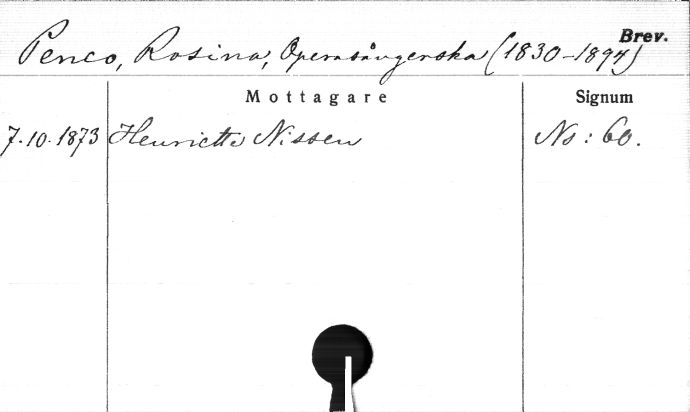 Brev.
Penco, Rosina, Operasångerska (1830–1894)
Mottagare Signum
7.10.1873 Henriette Nissen Ns: 60.